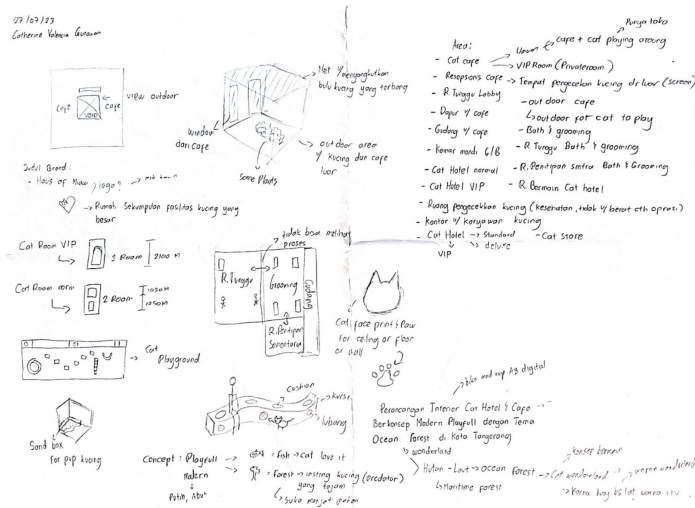 27/07/23
Catherine Valencia Gunawan
cafe
void
cafe
view outdoor
Net u/ menyangkutkan
bulu kucing yang terbang
window
dari cafe
Some Plants
outdoor area
u/ kucing dan cafe
luar
Judul Brand :
- Haus of Miaw
logo?
Rumah Sekumpulan fasilitas kucing yang
besar
Cat Room VIP
1 Room
2100 m
Cat Room norm
2 Room
1050 m
1050 m
Cat
Playground
Sand box
for pup kucing
tidak bisa melihat
proses
R. Tunggu
Grooming
Gudang
R. Penitipan
Sementara
Cat face print & Paw
for ceiling or floor
or wall
cushion
kursi
lubang
Concept : Playfull
Modern
Putih, Abu"
= Fish → cat love it
= Forest → insting kucing (predator)
yang tajam
Suka manjat pohon
Punya toko
Area :
- Cat cafe
Umum
cafe + cat playing around
VIP Room (Private room)
- Resepsionis cafe → Tempat pengecekan kucing dr luar (screen)
- R. Tunggu Lobby
- outdoor cafe
outdoor for cat to play
- Dapur u/ cafe
- Gudang u/ cafe
- Bath & grooming
- Kamar mandi G/B
- R. Tunggu Bath & grooming
- Cat Hotel normal
- R. Penitipan smtra Bath & Grooming
- Cat Hotel VIP
- R. Bermain Cat hotel
- Ruang pengecekkan kucing (kesehatan, tidak u/ berat cth oprasi)
- Kantor u/ karyawan kucing
- Cat Hotel → Standard
deluxe
VIP
- Cat store
bikin mind map A3 digital
Perancangan Interior Cat Hotel & Cafe
Berkonsep Modern Playfull dengan Tema
Ocean Forest di Kota Tangerang
wonderland
Hutan - Laut → Ocean Forest → Cat wonderland
Maritime forest
konsep bermain